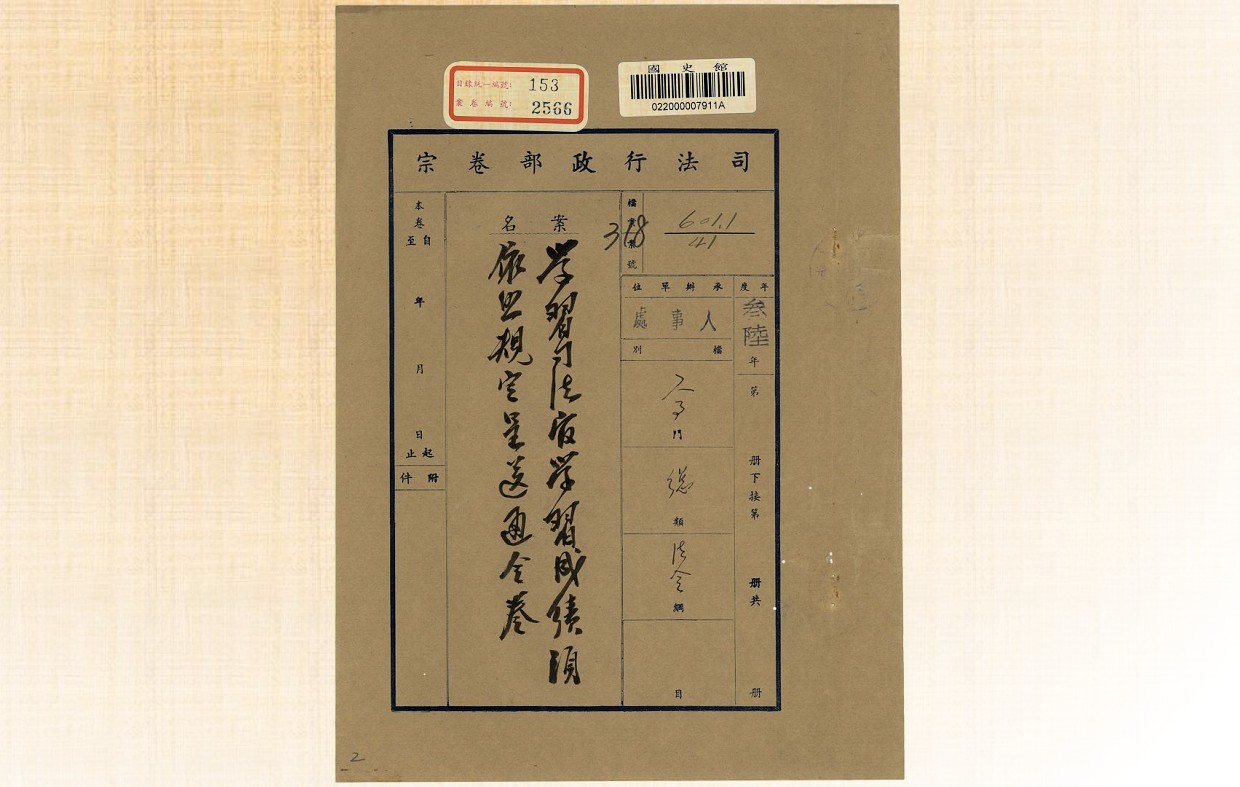 目錄統一編號: 153
案卷編號: 2566
國史館
022000007911A
司法行政部卷宗
年度
叁陸年
第
册下接第
册共
册
檔案號
318
601.1
41
承辦單位
人事處
檔別
門
總類
法令綱
目
案名
学習司法官学習成績須
依照規定呈送通令卷
本卷
自至
年
月
日
起止
附件
2